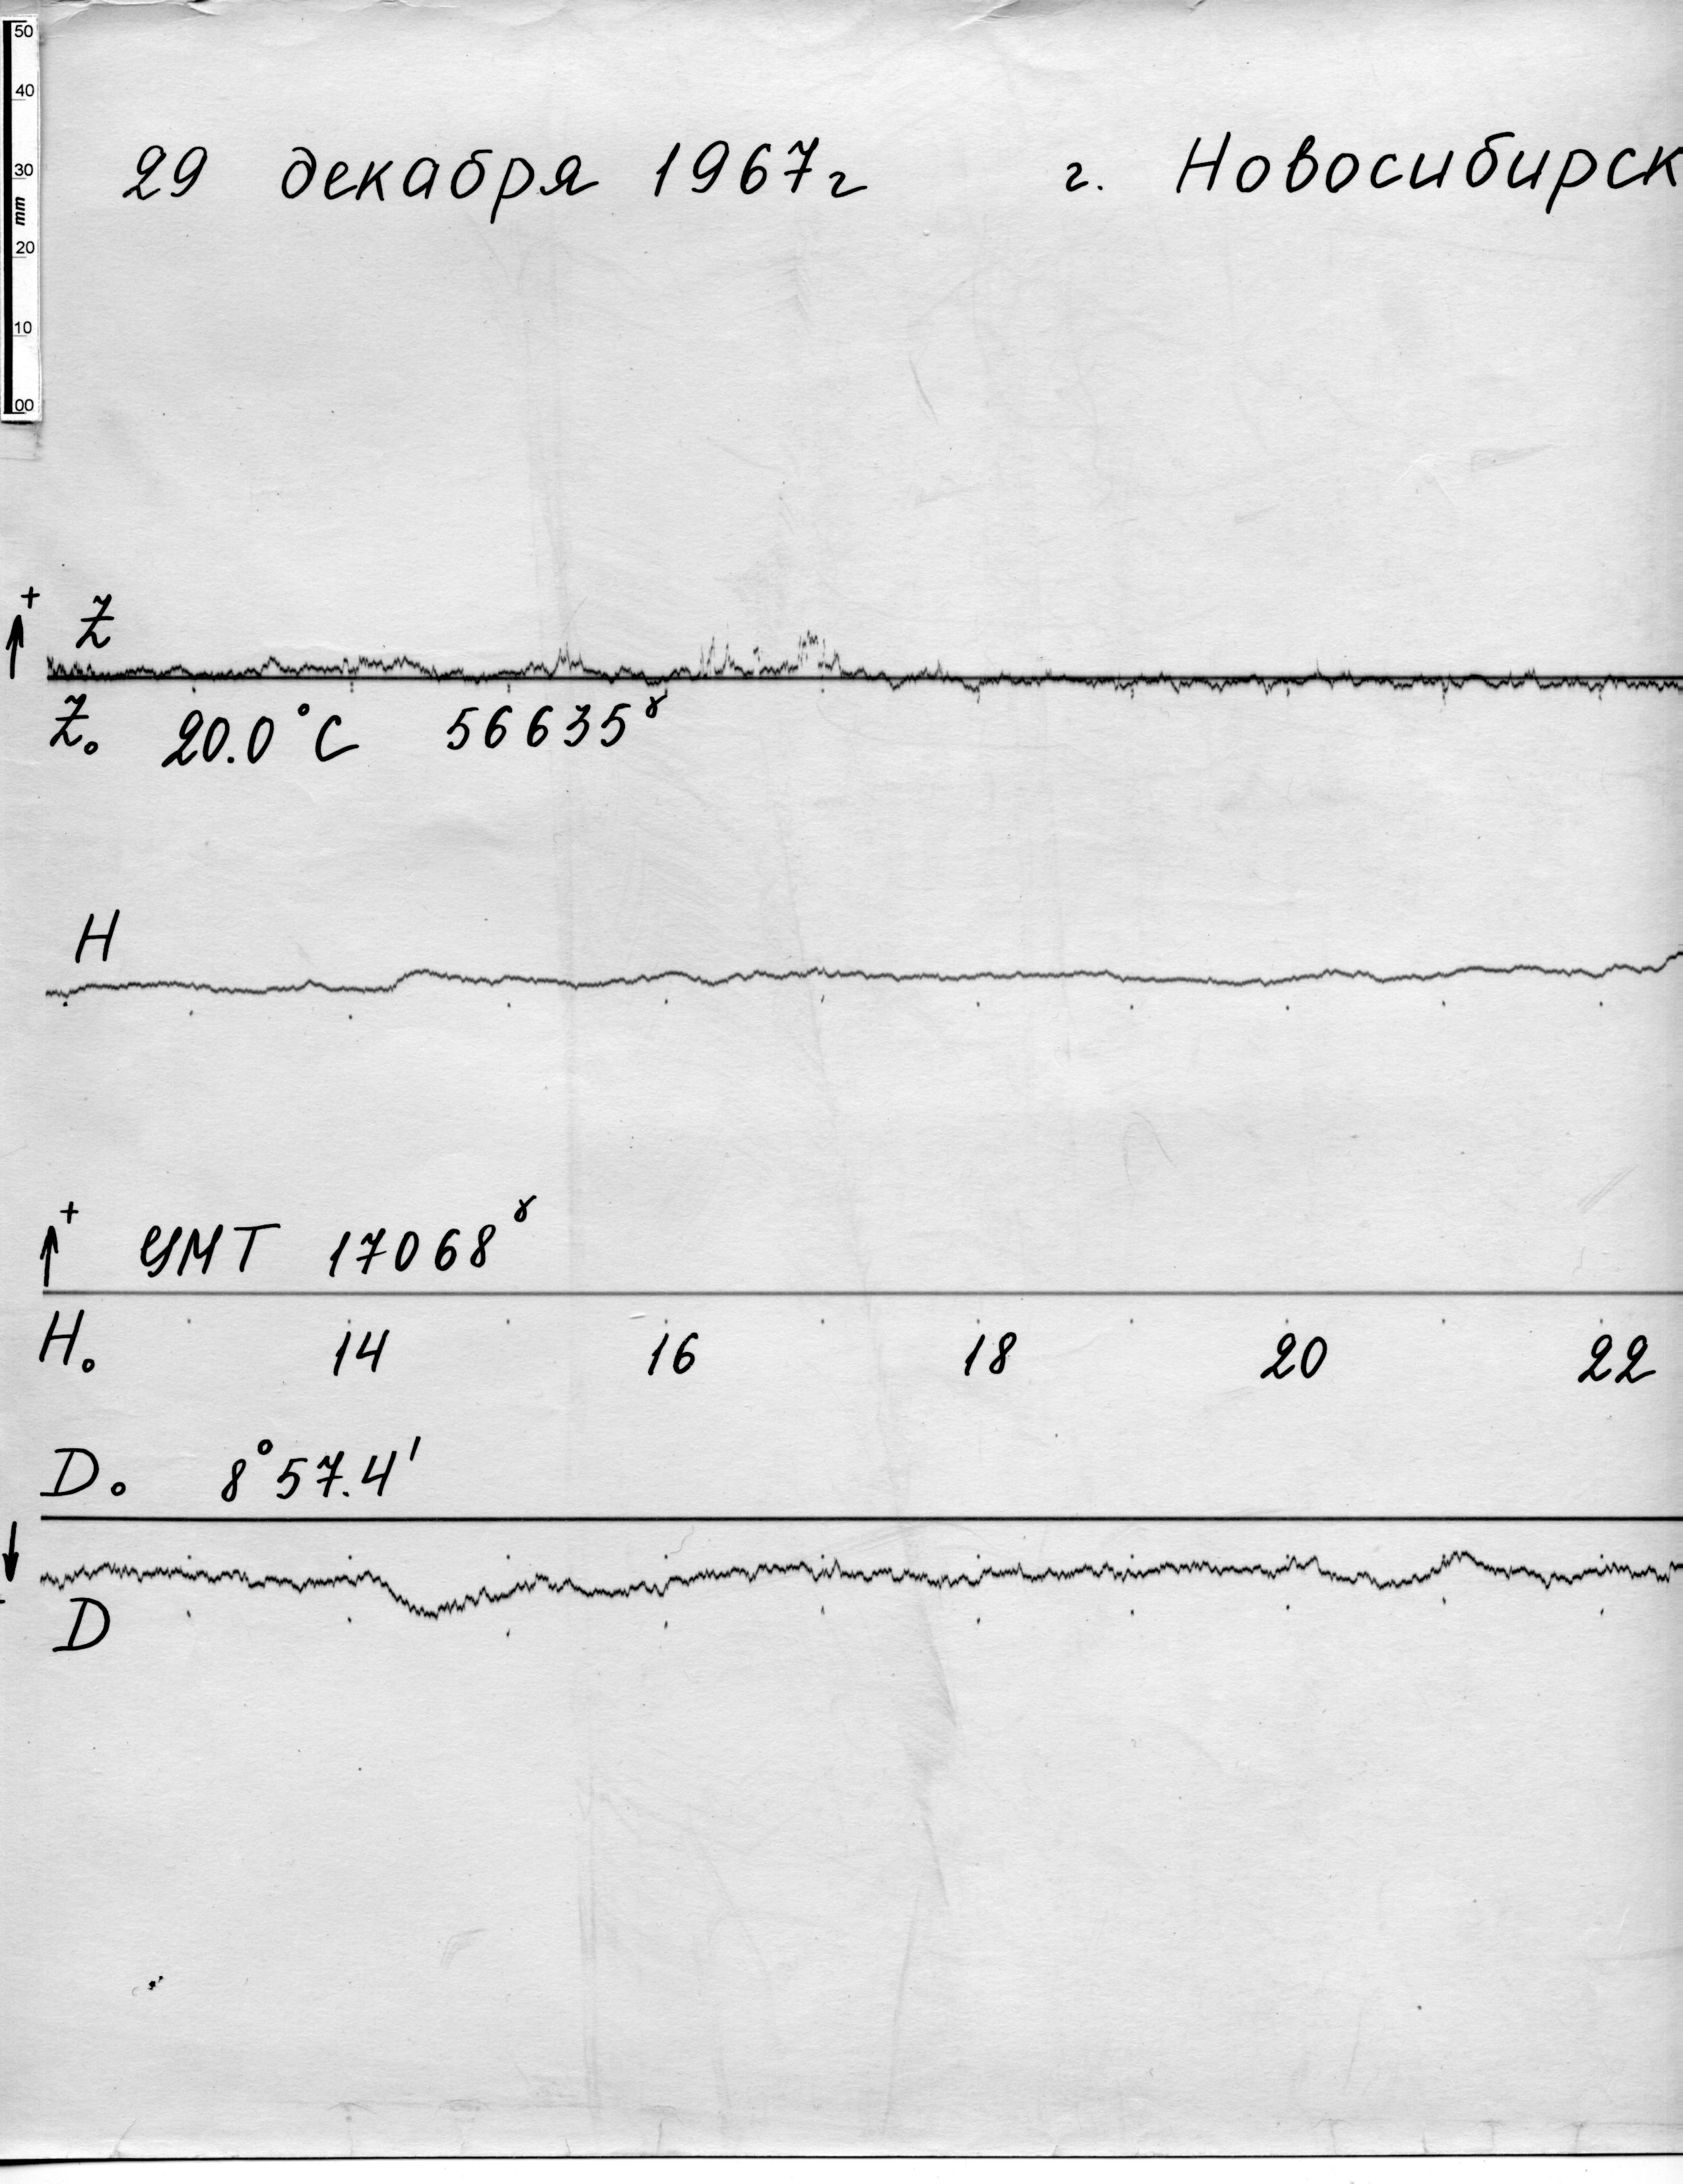 50
40
30
mm
20
10
00
29 декабря 1967г г. Новосибирск
+
Z
Z₀ 20.0°C 56635ˠ
H
+
УМТ 17068ˠ
H₀ 14 16 18 20 22
D₀ 8°57.4'
D